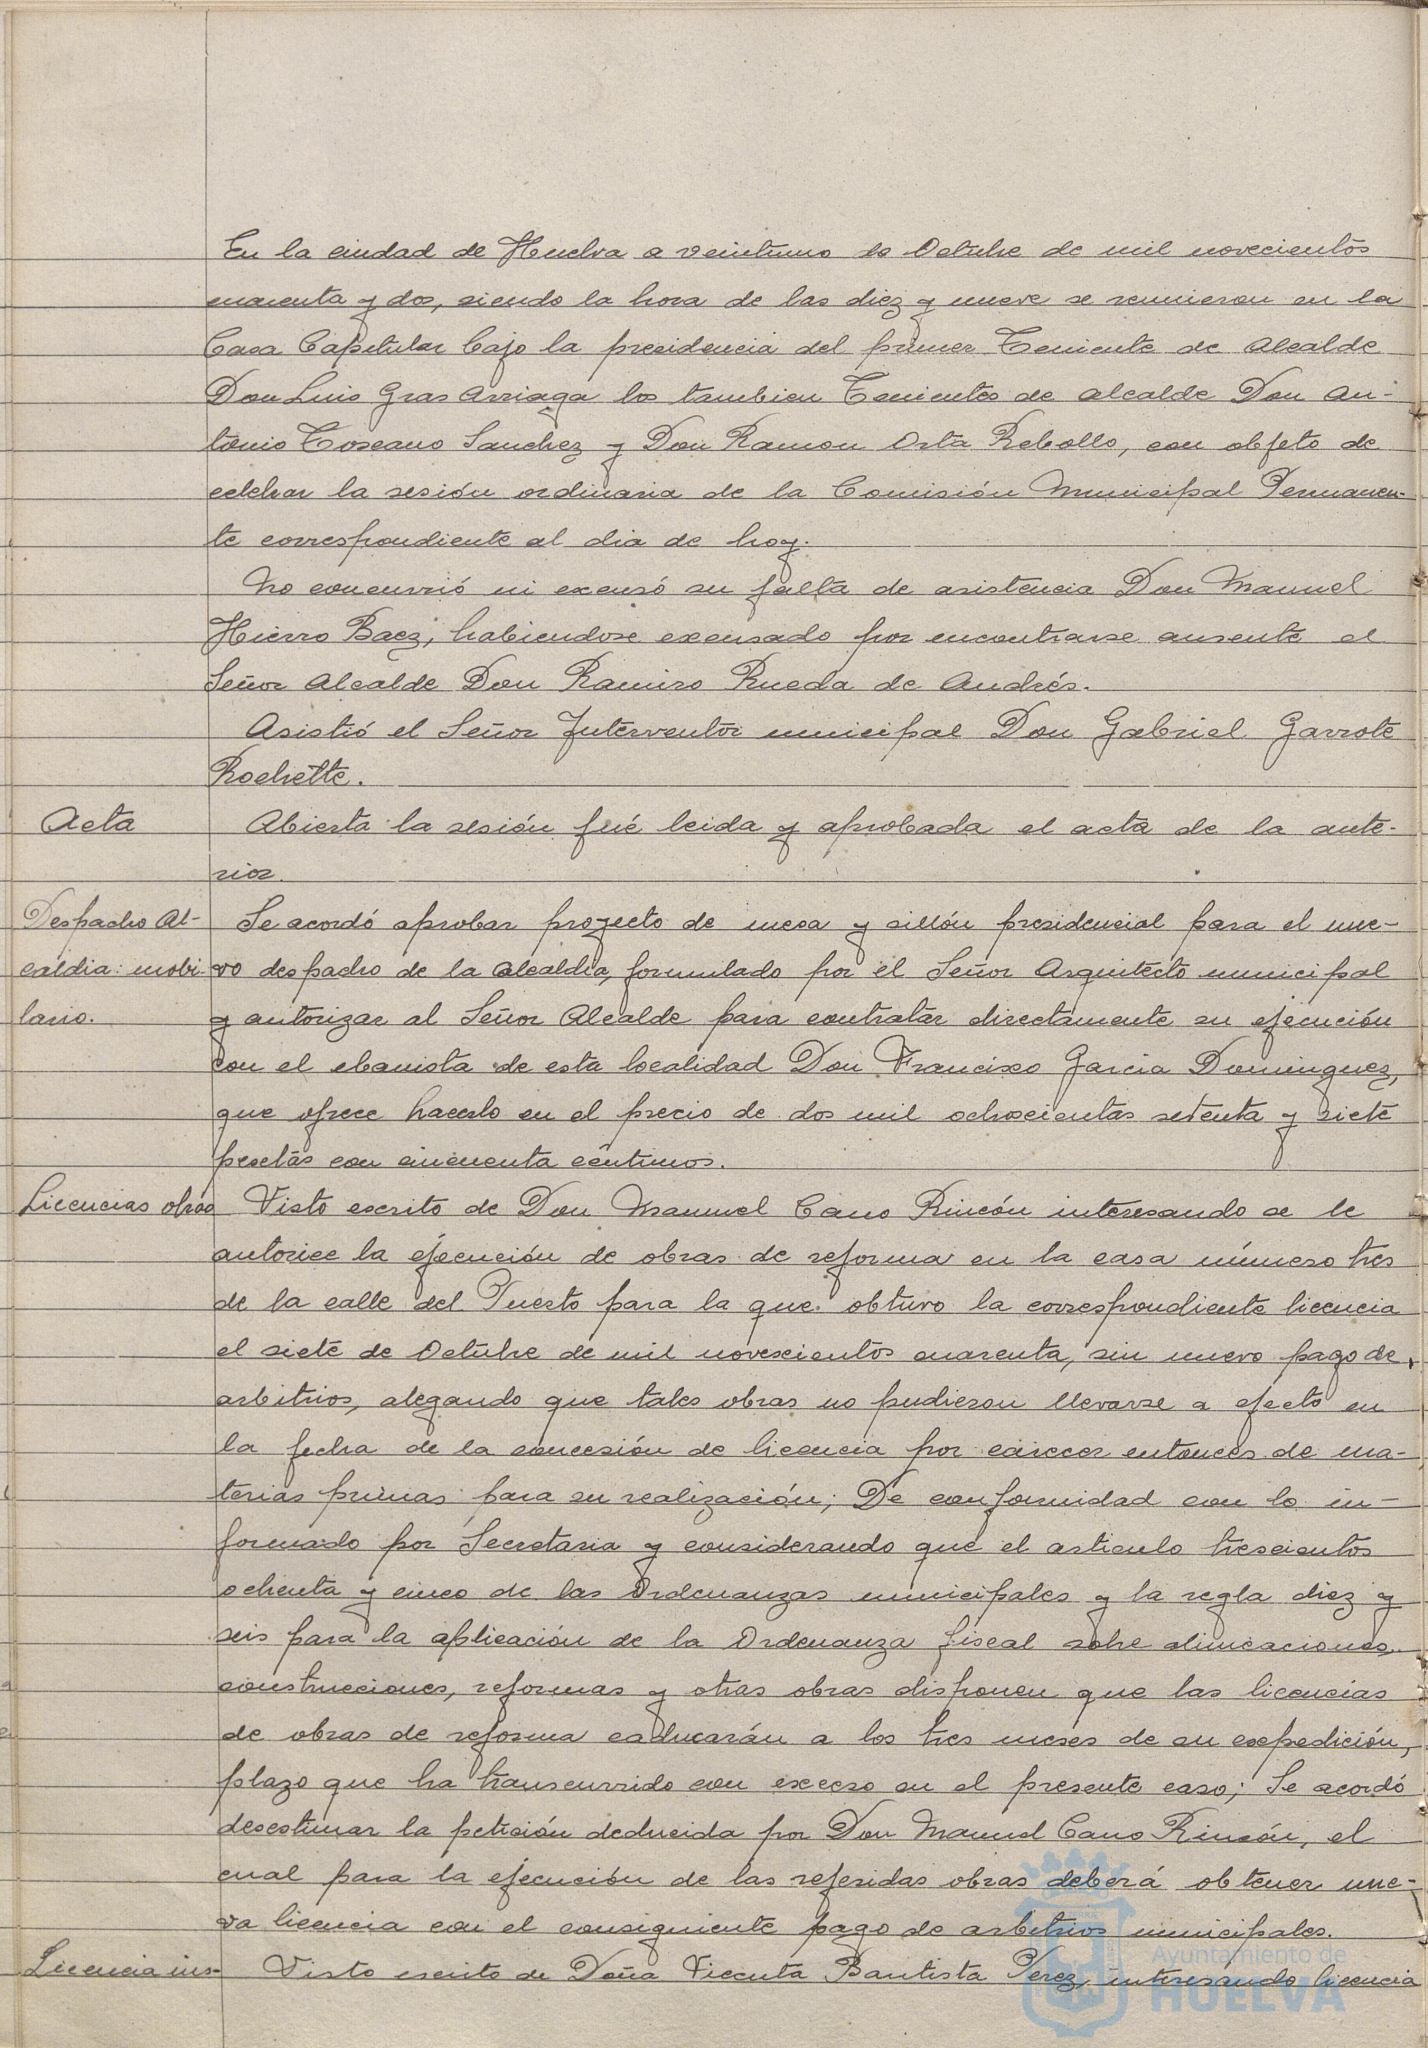 En la ciudad de Huelva a veintiuno de Octubre de mil novecientos
cuarenta y dos, siendo la hora de las diez y nueve se reunieron en la
Casa Capitular bajo la presidencia del primer Teniente de Alcalde
Don Luis Gras Arriaga los tambien Tenientes de alcalde Don An-
tonio Toscano Sanchez y Don Ramon Orta Rebollo, con objeto de
celebrar la sesión ordinaria de la Comisión Municipal Permanen-
te correspondiente al dia de hoy.
No concurrió ni excusó su falta de asistencia Don Manuel
Hierro Baez, habiendose excusado por encontrarse ausente el
Señor Alcalde Don Ramiro Rueda de Andrés.
Asistió el Señor Interventor municipal Don Gabriel Garrote
Rochette.
Acta
Abierta la sesión fué leida y aprobada el acta de la ante-
rior.
Despacho Al-
caldia: mobi-
liario.
Se acordó aprobar proyecto de mesa y sillón presidencial para el nue-
vo despacho de la Alcaldia, formulado por el Señor Arquitecto municipal
y autorizar al Señor Alcalde para contratar directamente su ejecución
con el ebanista de esta localidad Don Francisco Garcia Dominguez,
que ofrece hacerlo en el precio de dos mil ochocientas setenta y siete
pesetas con cincuenta céntimos.
Licencias obras
Visto escrito de Don Manuel Cano Rincón interesando se le
autorice la ejecución de obras de reforma en la casa número tres
de la calle del Puerto para la que obtuvo la correspondiente licencia
el siete de Octubre de mil novescientos cuarenta, sin nuevo pago de
arbitrios, alegando que tales obras no pudieron llevarse a efecto en
la fecha de la concesión de licencia por carecer entonces de ma-
terias primas para su realización; De conformidad con lo in-
formado por Secretaria y considerando que el articulo trescientos
ochenta y cinco de las Ordenanzas municipales y la regla diez y
seis para la aplicación de la Ordenanza fiscal sobre alineaciones,
construcciones, reformas y otras obras disponen que las licencias
de obras de reforma caducarán a los tres meses de su expedición,
plazo que ha transcurrido con exceso en el presente caso; Se acordó
desestimar la petición deducida por Don Manuel Cano Rincón, el
cual para la ejecución de las referidas obras deberá obtener nue-
va licencia con el consiguiente pago de arbitrios municipales.
Licencia ins-
Visto escrito de Doña Vicenta Bautista Perez, interesando licencia
Ayuntamiento de
HUELVA